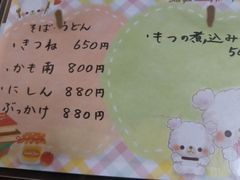 そば・うどん
・きつね 650円
・かも南 800円
・にしん 880円
ぶっかけ 880円
・もつの煮込み